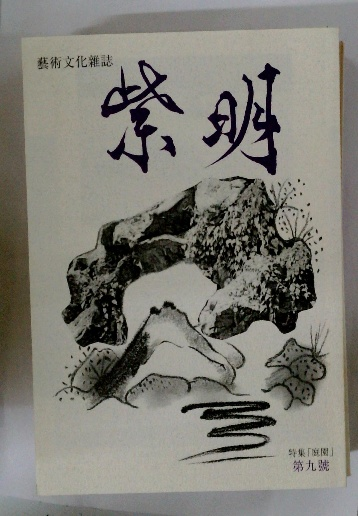 藝術文化雑誌
紫明
特集「庭園」
第九號